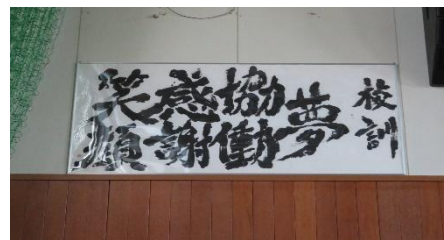 校訓
夢
協働
感謝
笑顔